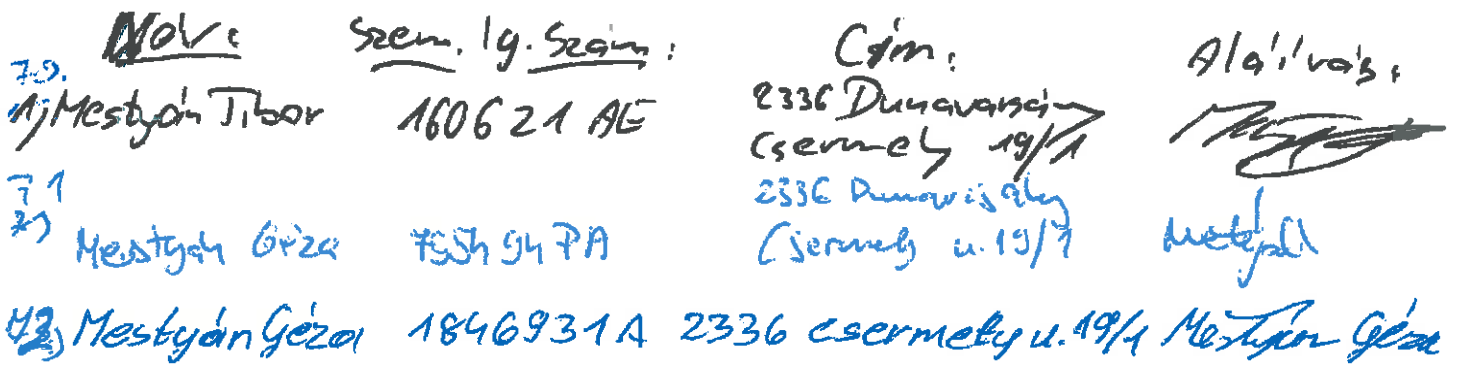 Név: Szem. Ig. Szám: Cím: Aláírás:
70.
1) Mestyán Tibor 160621 AE 2336 Dunavarsány
Csermely 19/1
71 2336 Dunavarsány
Mestyán Géza 795494 PA Csermely u. 19/1
72) Mestyán Géza 1846931A 2336 csermely u. 19/1 Mestyán Géza